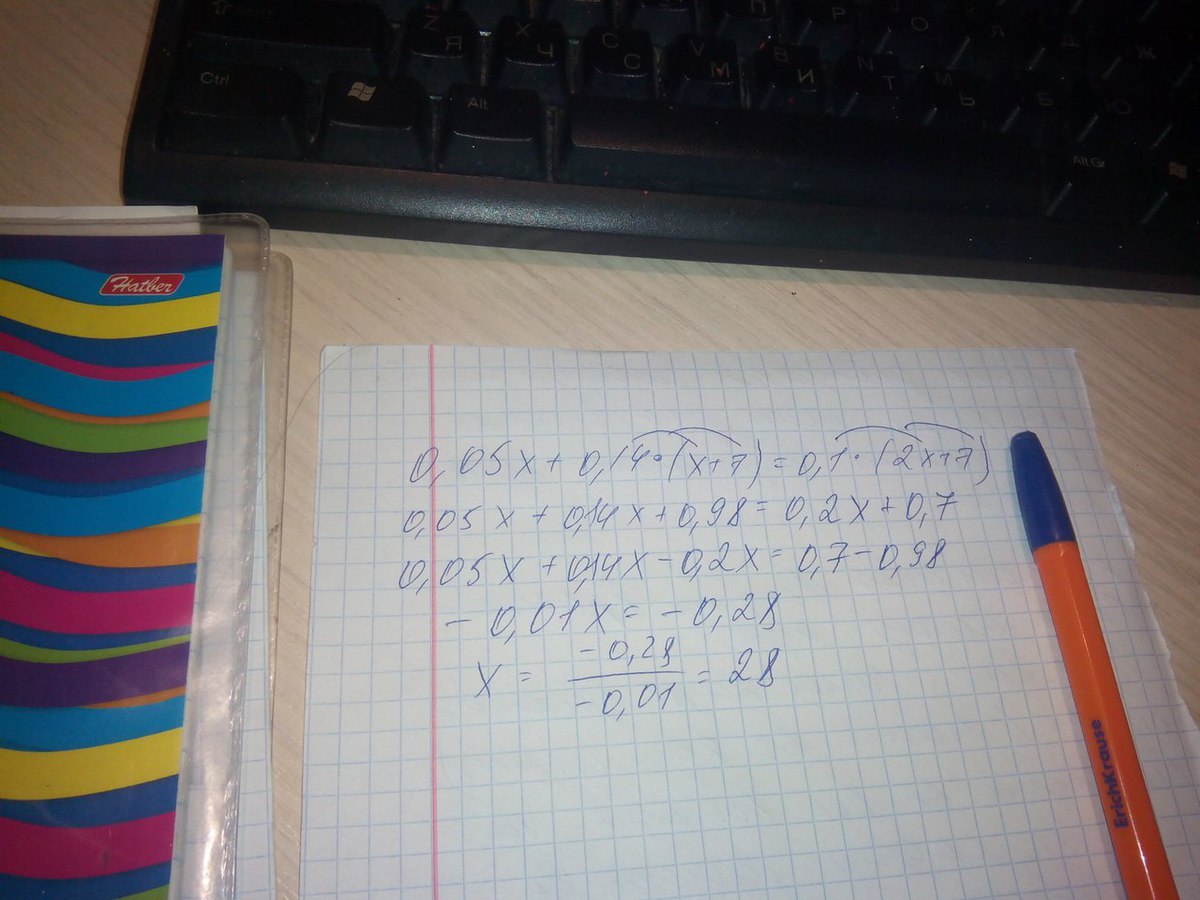 Shift Z Я X Ч C С V М B И N Т M Ь Б Ю
Р О Л Д Ж
Ctrl Alt Alt Gr
Hatber
0,05x + 0,14·(x+7) = 0,1·(2x+7)
0,05x + 0,14x + 0,98 = 0,2x + 0,7
0,05x + 0,14x - 0,2x = 0,7 - 0,98
- 0,01x = - 0,28
x = -0,28 / -0,01 = 28
ErichKrause